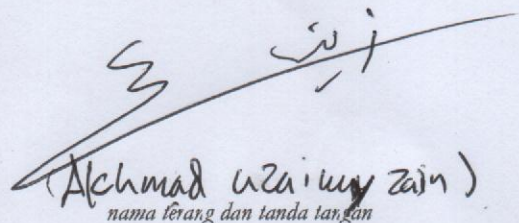 زين
(Akhmad uzaimy zain)
nama terang dan tanda tangan